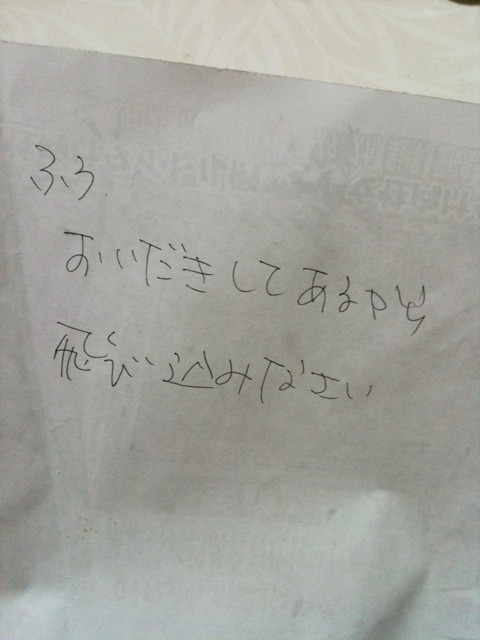 ふろ
おいだきしてあるから
飛び込みなさい